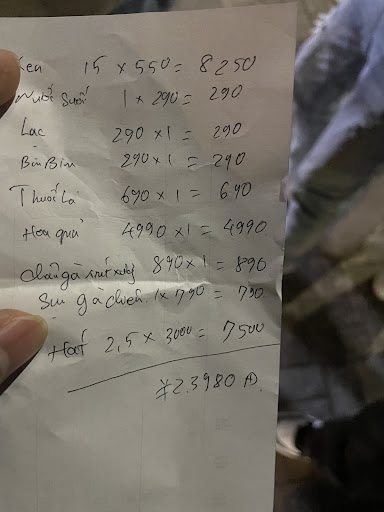 Ken 15 × 550 = 8250
Nước Suối 1 × 290 = 290
Lạc 290 × 1 = 290
Bim Bim 290 × 1 = 290
Thuốc Lá 690 × 1 = 690
Hoa quả 4990 × 1 = 4990
Chân gà rút xương 890 × 1 = 890
Sụn gà chiên 1 × 790 = 790
Hát 2,5 × 3000 = 7500
¥23980